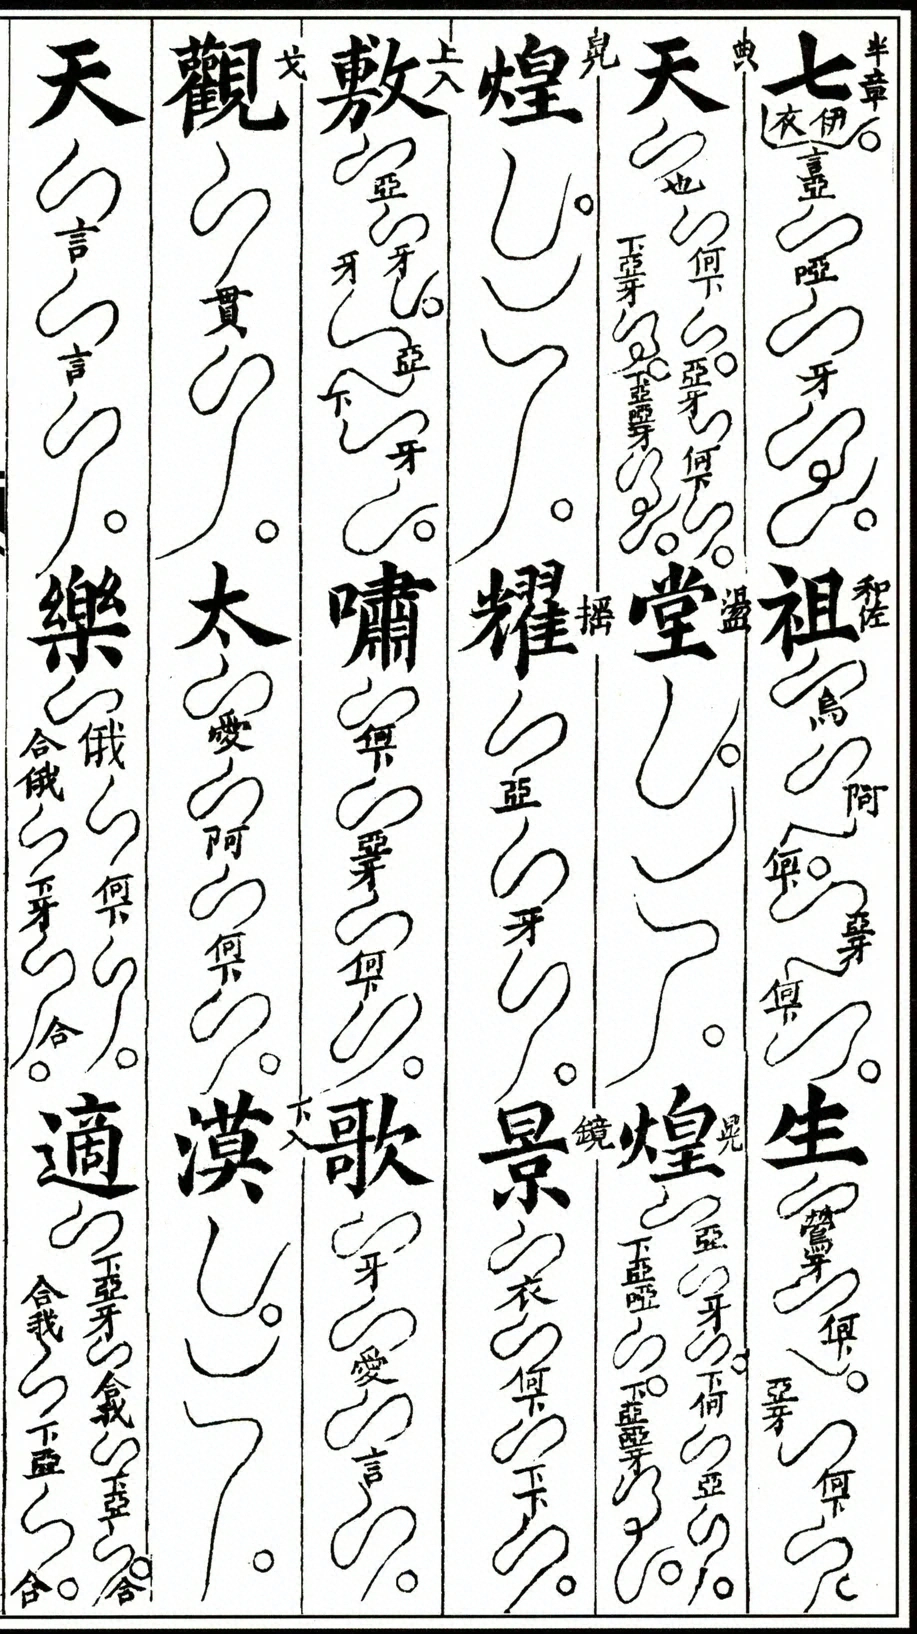 半章 七 伊衣 言亞 啞 牙 祖 和佐 烏 阿 何下 亞牙 何下 生 鶯牙 何下 亞牙 何下
天 典 也 何下 亞牙 何下 下亞牙 下亞啞牙 堂 盪 煌 晃 亞 牙 下何 亞 下亞啞 下亞啞牙
煌 晃 耀 摇 亞 牙 景 鏡 衣 何下 下下
敷 上入 亞 牙 牙 亞 下 牙 嘯 何下 亞牙 何下 歌 牙 愛 言
觀 戈 貫 太 愛 阿 何下 漠 下入
天 言 言 樂 俄 何下 合俄 下牙 合 適 下亞牙 合我 下亞 合 合我 下亞 合